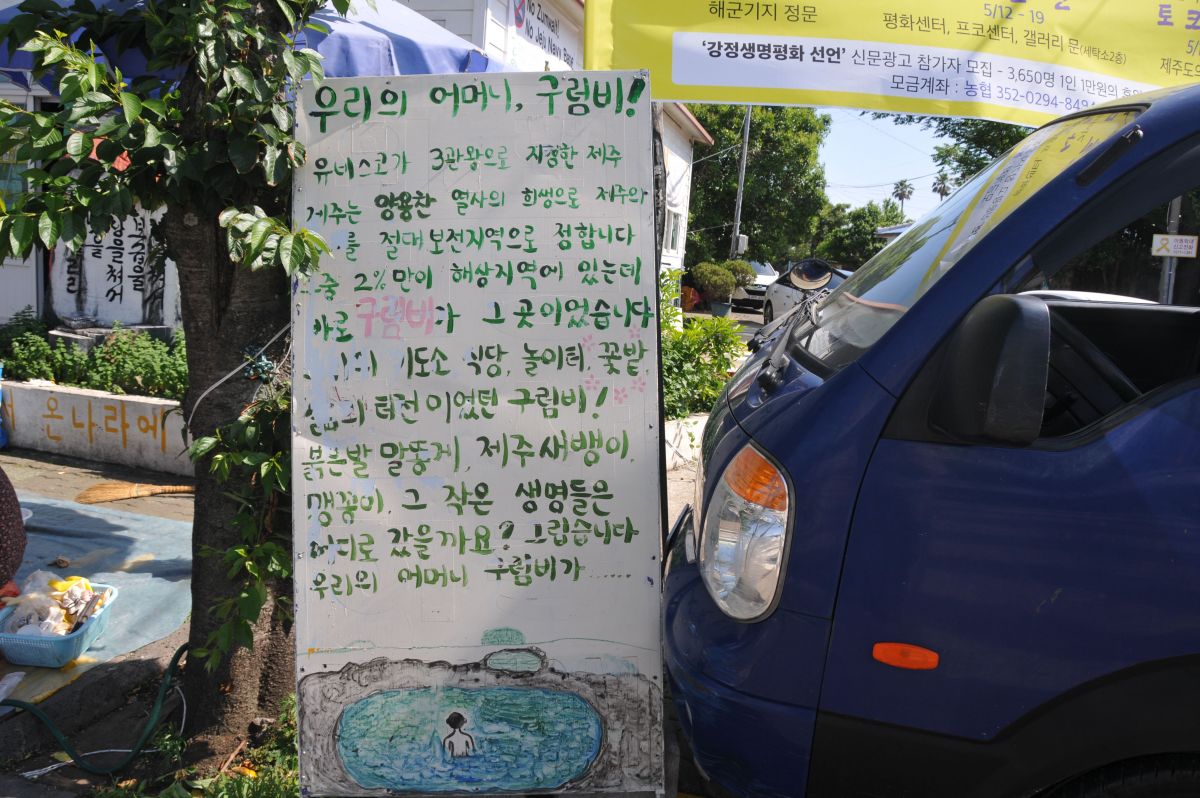 No Zumwalt
No Jeju Naval Base
해군기지 정문
5/12 - 19
평화센터, 프코센터, 갤러리 문(세탁소2층)
'강정생명평화 선언' 신문광고 참가자 모집 - 3,650명 1인 1만원의
모금계좌 : 농협 352-0294-849
토크
5/
제주도의
우리의 어머니, 구럼비!
유네스코가 3관왕으로 지정한 제주
제주는 양용찬 열사의 희생으로 제주와
를 절대보전지역으로 정합니다
중 2%만이 해상지역에 있는데
바로 구럼비가 그 곳이었습니다
기도소 식당, 놀이터, 꽃밭
삶의 터전이었던 구럼비!
붉은발 말똥게, 제주새뱅이,
맹꽁이, 그 작은 생명들은
어디로 갔을까요? 그립습니다
우리의 어머니 구럼비가......
온나라에